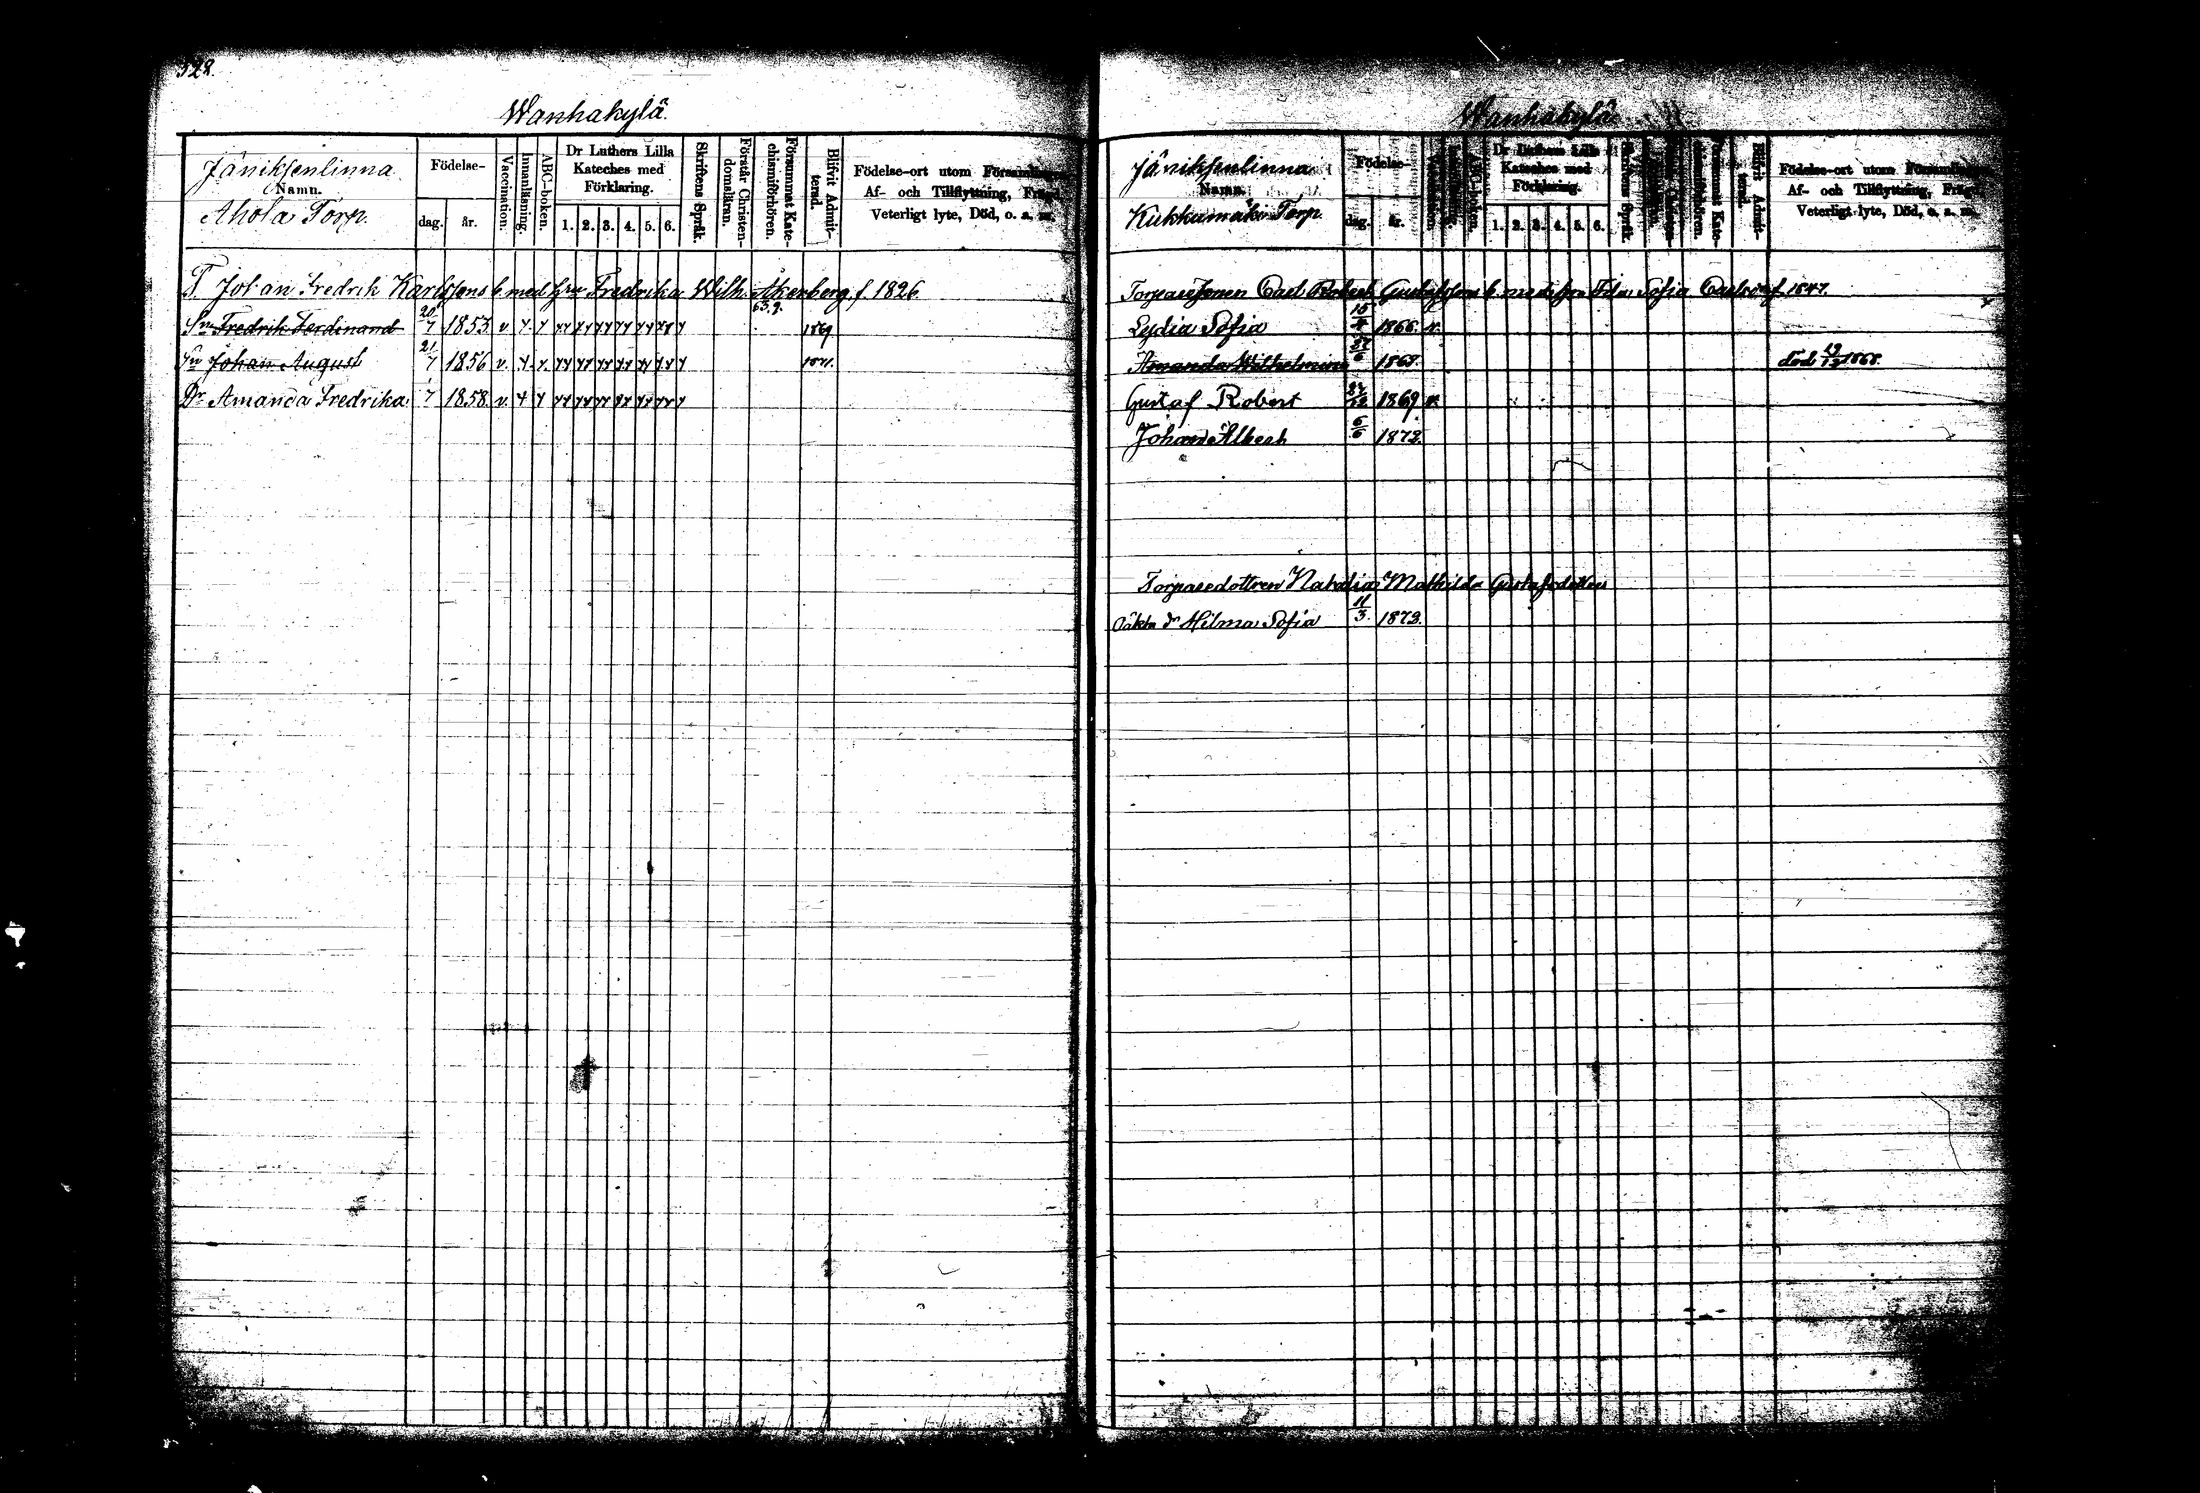 328.
Wanhakylä
Jäniksenlinna
Namn.
Ahola Torp.
Födelse-
dag. år.
Vaccination.
Innanläsning.
ABC-boken.
Dr Luthers Lilla
Kateches med
Förklaring.
1. 2. 3. 4. 5. 6.
Skriftens Språk.
Förstår Christen-
domsläran.
Försummat Kate-
chismiförhören.
Blifvit Admit-
terad.
Födelse-ort utom Församlingen
Af- och Tillflyttning, Frägd,
Veterligt lyte, Död, o. s. m.
T. Johan Fredrik Karlssons b. med hru Fredrika Wilh. Åkerberg f. 1826.
63. 9.
Sn Fredrik Ferdinand 20/7 1853 v y y yy yy yy yy yy yy y 1869
Sn Johan August 21/7 1856 v. y. y. yy yy yy yy yy yy y 1871.
Dr Amanda Fredrika 1/7 1858 v. y y yy yy yy yy yy yy y
Wanhakylä
Jäniksenlinna
Namn.
Kukkamäki Torp.
Födelse-
dag. år.
ABC-boken.
Dr Luthers Lilla
Kateches med
Förklaring.
1. 2. 3. 4. 5. 6.
Skriftens Språk.
Försummat Kate-
chismiförhören.
Blifvit Admit-
terad.
Födelse-ort utom Församlingen
Af- och Tillflyttning, Frägd,
Veterligt lyte, Död, o. s. m.
Torparesonen Carl Robert Gustafssons b. med hru Sofia Carlsdr f. 1847.
Lydia Sofia 1866. v.
Amanda Wilhelmina 1868. död 19/12 1868.
Gustaf Robert 1869 v.
Johan Albert 6/6 1872.
Torparedottren Natalia Mathilda Gustafsdotters
Oäkta dr Hilma Sofia 11/3. 1873.